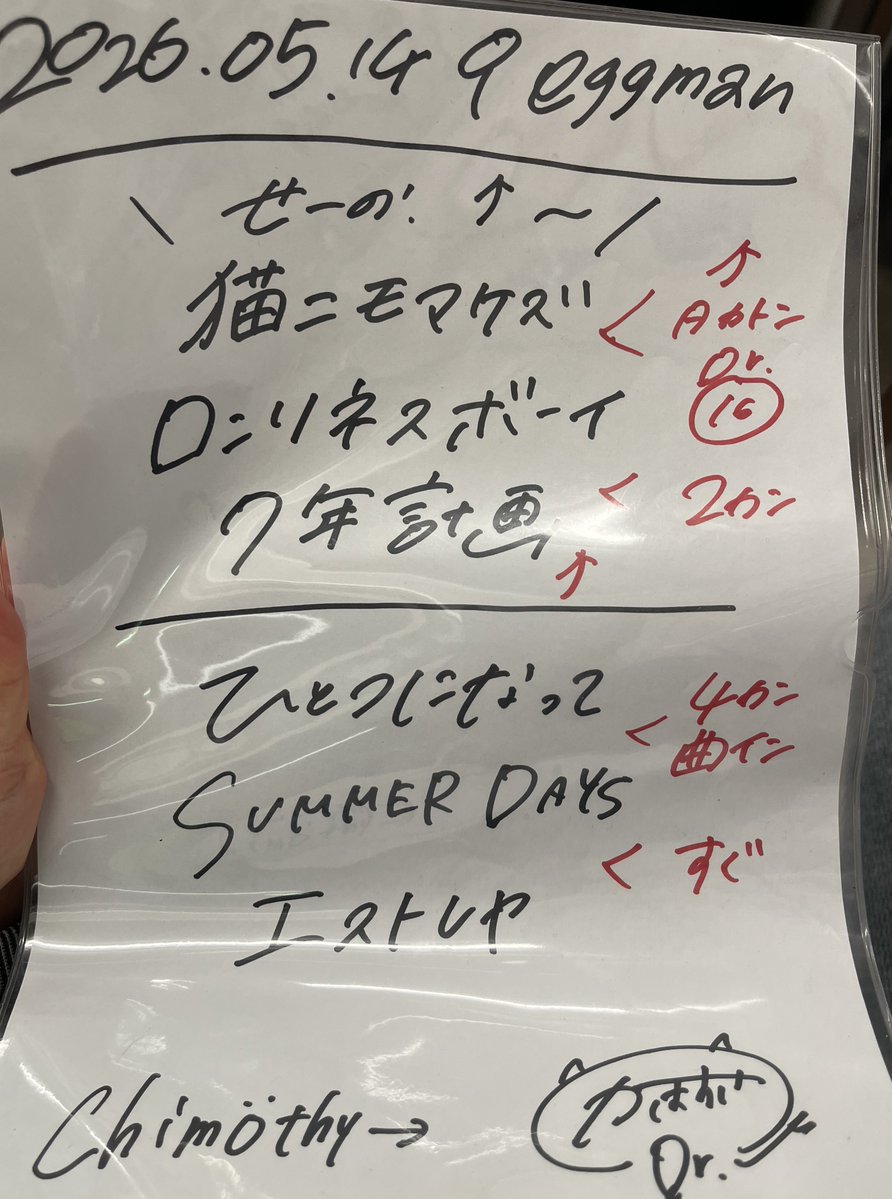 2026.05.14 @ eggman
\ せーの! ↑〜/
猫ニモマケズ
↑
< Aカトン
Dr.
16
ロンリネスボーイ
7年計画
< 2カン
↑
ひとつになって
< 4カン
曲イン
SUMMER DAYS
< すぐ
エストレヤ
Chimöthy→
Dr.